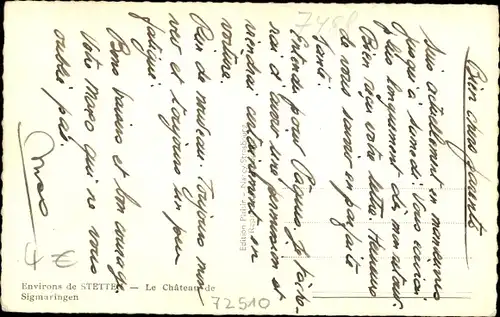 Bien chers parents
Suis actuellement en manœuvres
jusqu'à samedi. Vous écrirai
plus longuement dès mon retour.
Bien reçu votre lettre. Heureux
de vous savoir en parfaite
santé.
Entendu pour Pâques. Je tâche-
rai d'avoir une permission et
viendrai certainement en
voiture.
Rien de nouveau. Toujours
et toujours un peu
fatigué.
Bons baisers et bon courage.
Votre Marco qui ne vous
oublie pas.
Marco
7458
Edition
Environs de STETTEN — Le Château de
Sigmaringen
4 €
72510